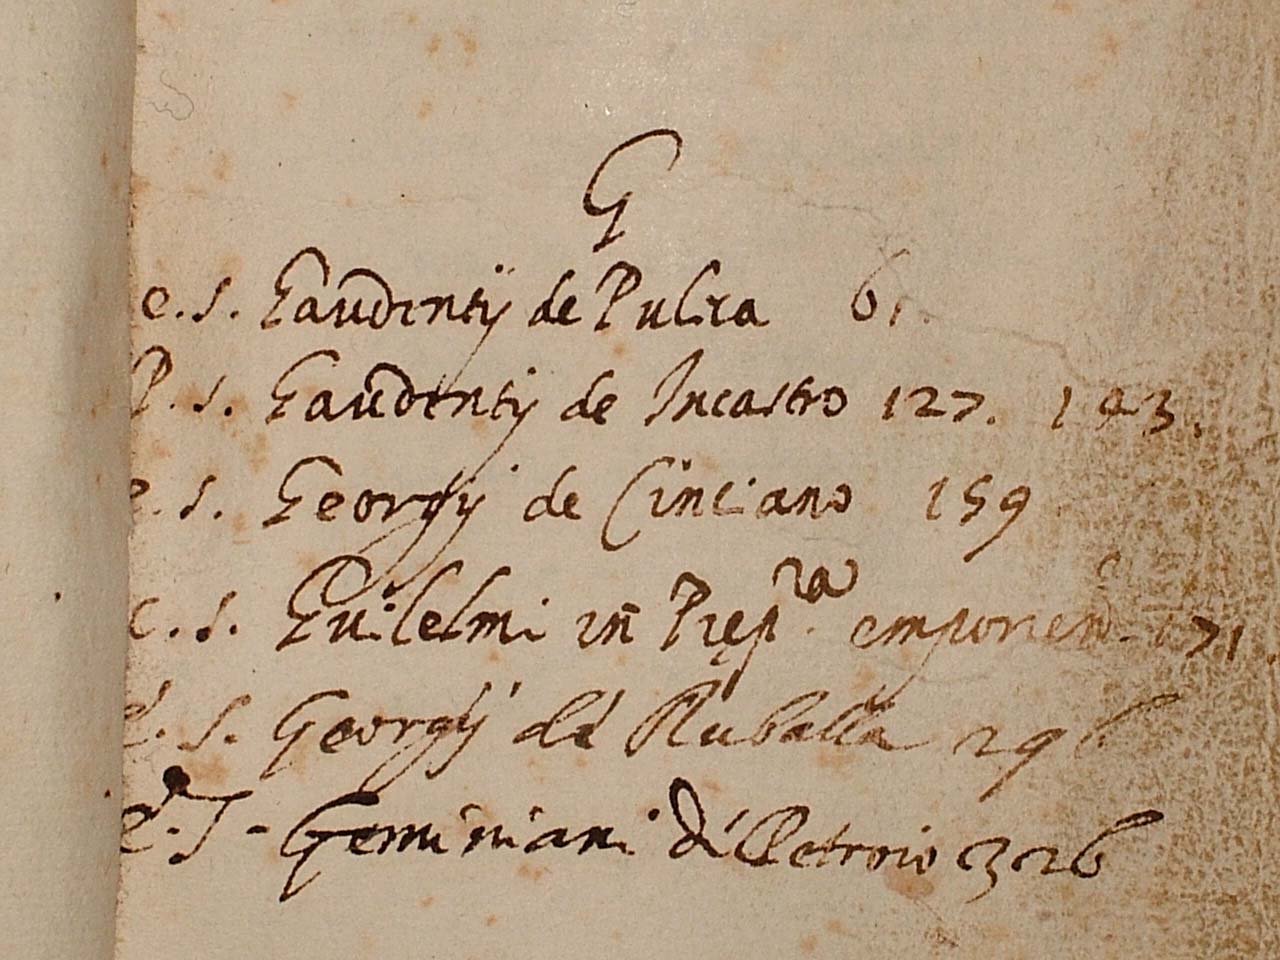 G
e. s. Gaudentij de Pulira 61.
P. s. Gaudentij de Incastro 127. 143.
e. s. Georgij de Cinciano 159
e. s. Guilelmi in emporien. 171
e. S. Georgij de Ruballa 296
e. S - Geminiani di Petroio 326